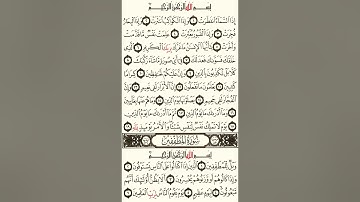 بِسْمِ اللَّهِ الرَّحْمَٰنِ الرَّحِيمِ
إِذَا السَّمَاءُ انفَطَرَتْ ١ وَإِذَا الْكَوَاكِبُ انتَثَرَتْ ٢ وَإِذَا الْبِحَارُ
فُجِّرَتْ ٣ وَإِذَا الْقُبُورُ بُعْثِرَتْ ٤ عَلِمَتْ نَفْسٌ مَّا قَدَّمَتْ
وَأَخَّرَتْ ٥ يَٰأَيُّهَا الْإِنسَٰنُ مَا غَرَّكَ بِرَبِّكَ الْكَرِيمِ ٦ الَّذِي
خَلَقَكَ فَسَوَّىٰكَ فَعَدَلَكَ ٧ فِي أَيِّ صُورَةٍ مَّا شَاءَ رَكَّبَكَ ٨
كَلَّا بَلْ تُكَذِّبُونَ بِالدِّينِ ٩ وَإِنَّ عَلَيْكُمْ لَحَٰفِظِينَ ١٠ كِرَامًا
كَٰتِبِينَ ١١ يَعْلَمُونَ مَا تَفْعَلُونَ ١٢ إِنَّ الْأَبْرَارَ لَفِي نَعِيمٍ ١٣
وَإِنَّ الْفُجَّارَ لَفِي جَحِيمٍ ١٤ يَصْلَوْنَهَا يَوْمَ الدِّينِ ١٥ وَمَا هُمْ عَنْهَا بِغَائِبِينَ
١٦ وَمَا أَدْرَىٰكَ مَا يَوْمُ الدِّينِ ١٧ ثُمَّ مَا أَدْرَىٰكَ مَا يَوْمُ الدِّينِ ١٨
يَوْمَ لَا تَمْلِكُ نَفْسٌ لِّنَفْسٍ شَيْئًا وَالْأَمْرُ يَوْمَئِذٍ لِّلَّهِ ١٩
سُورَةُ الْمُطَفِّفِينَ
بِسْمِ اللَّهِ الرَّحْمَٰنِ الرَّحِيمِ
وَيْلٌ لِّلْمُطَفِّفِينَ ١ الَّذِينَ إِذَا اكْتَالُوا عَلَى النَّاسِ يَسْتَوْفُونَ ٢
وَإِذَا كَالُوهُمْ أَو وَّزَنُوهُمْ يُخْسِرُونَ ٣ أَلَا يَظُنُّ أُولَٰئِكَ أَنَّهُم
مَّبْعُوثُونَ ٤ لِيَوْمٍ عَظِيمٍ ٥ يَوْمَ يَقُومُ النَّاسُ لِرَبِّ الْعَٰلَمِينَ ٦